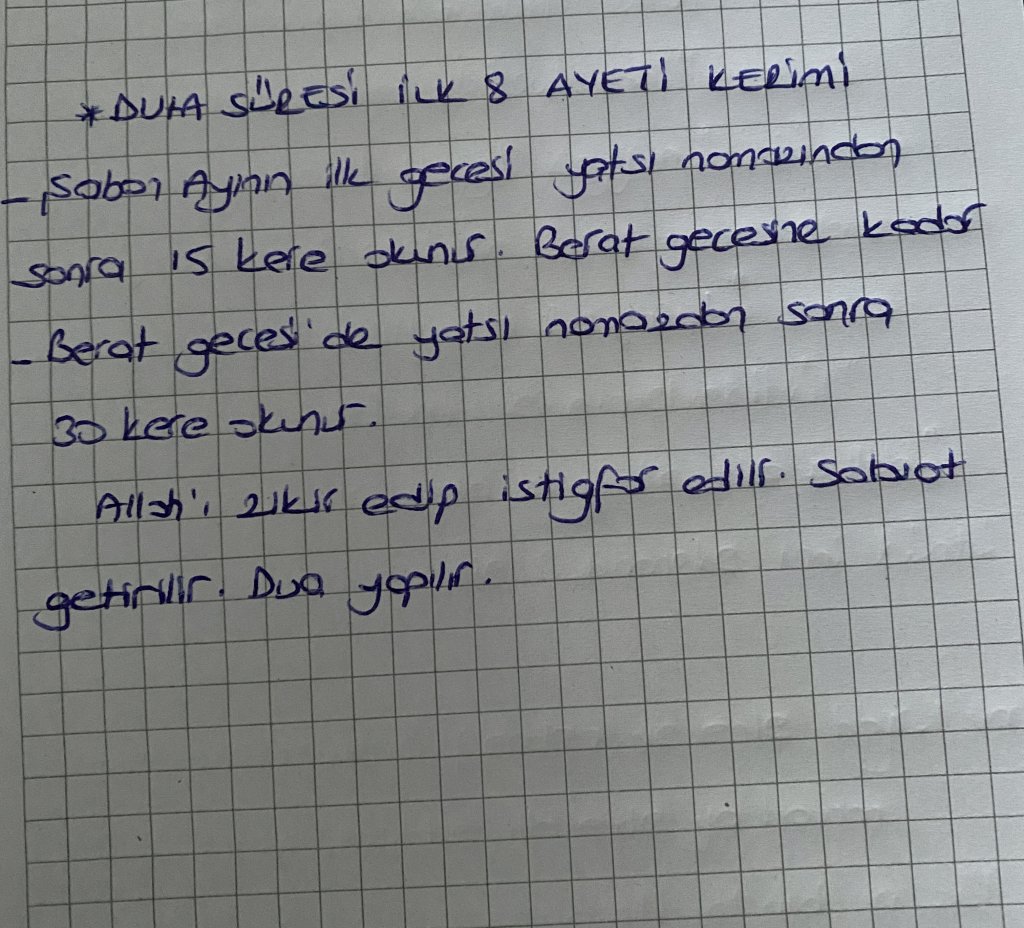 * DUHA SÛRESİ İLK 8 AYETİ KERİMİ
- Şaban Ayının ilk gecesi yatsı namazından
sonra 15 kere okunur. Berat gecesine kadar
- Berat gecesi de yatsı namazdan sonra
30 kere okunur.
Allah'ı zikir edip istigfar edilir. Salavat
getirilir. Dua yapılır.